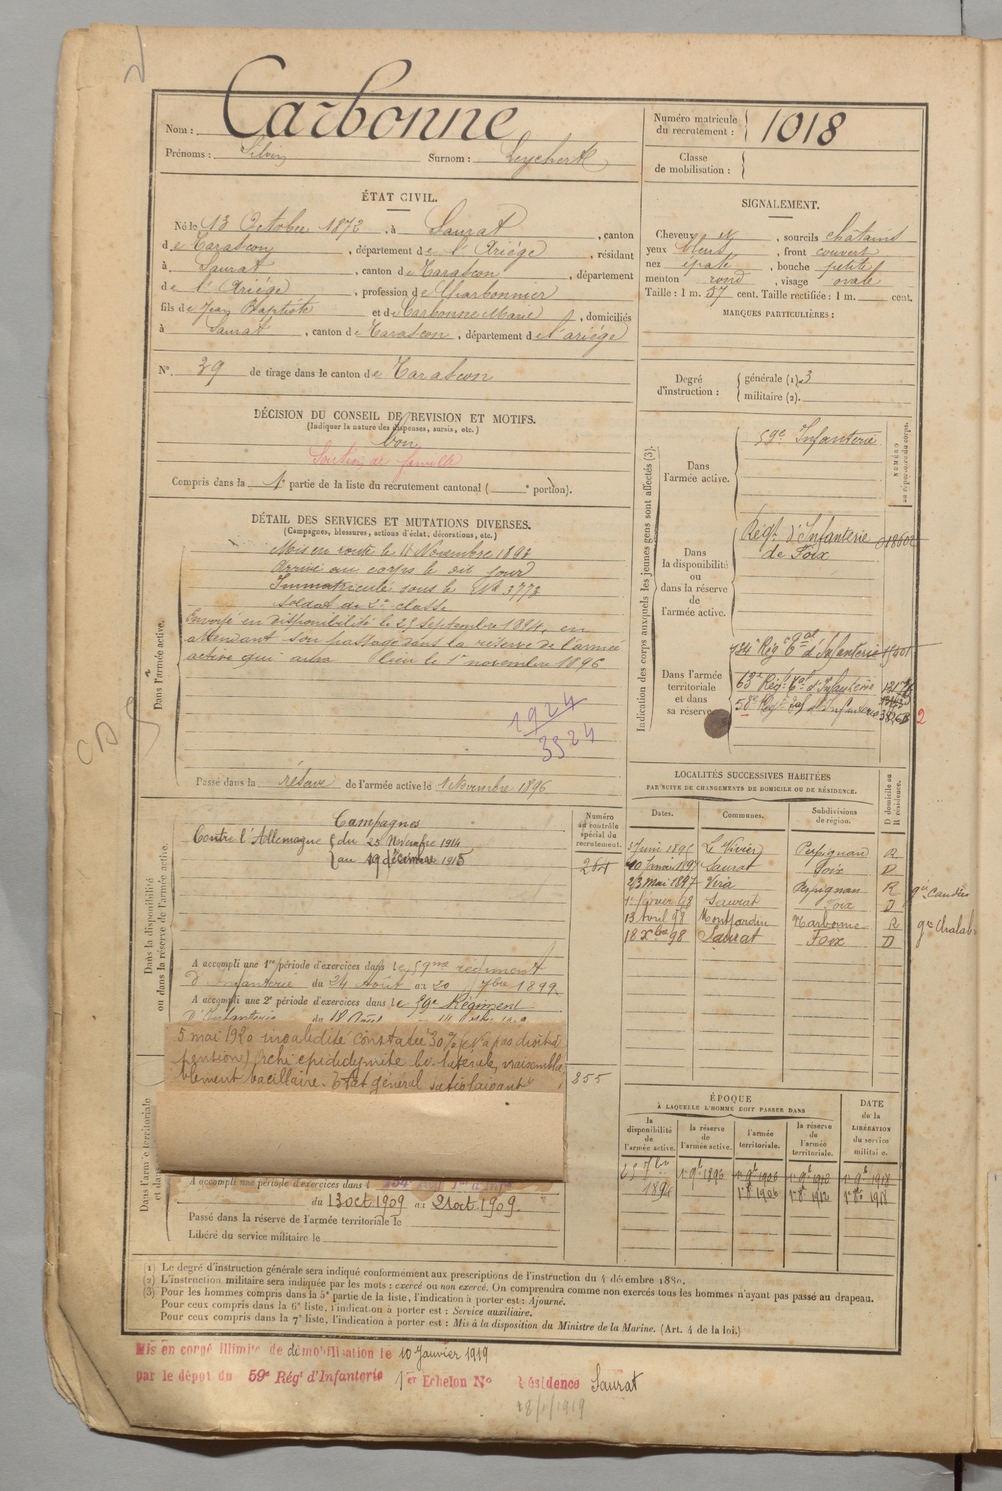 Nom : Carbonne
Prénoms : Silvin Surnom :
Numéro matricule du recrutement : 1018
Classe de mobilisation :
ÉTAT CIVIL.
Né le 13 Octobre 1872, à Saurat, canton
de Tarascon, département de l'Ariége, résidant
à Saurat, canton de Tarascon, département
de l'Ariége, profession de Charbonnier
fils de Jean Baptiste et de Carbonne Marie, domiciliés
à Saurat, canton de Tarascon, département de l'ariége
N° 39 de tirage dans le canton de Tarascon
SIGNALEMENT.
Cheveux id, sourcils chatains
yeux bleus, front couvert
nez épaté, bouche petite
menton rond, visage ovale
Taille : 1 m. 57 cent. Taille rectifiée : 1 m. cent.
MARQUES PARTICULIÈRES :
Degré d'instruction : générale (1). 3
militaire (2).
DÉCISION DU CONSEIL DE REVISION ET MOTIFS.
(Indiquer la nature des dispenses, sursis, etc.)
bon
Soutien de famille
Compris dans la 1e partie de la liste du recrutement cantonal ( e portion).
DÉTAIL DES SERVICES ET MUTATIONS DIVERSES.
(Campagnes, blessures, actions d'éclat, décorations, etc.)
Dans l'armée active.
Mis en route le 11 Novembre 1893
Arrivé au corps le dit jour
Immatriculé sous le N° 3773
Soldat de 2e classe
Envoyé en disponibilité le 25 septembre 1894, en
attendant son passage dans la réserve de l'armée
active qui aura lieu le 1er novembre 1896
1924
3524
Passé dans la réserve de l'armée active le 1 Novembre 1896
Indication des corps auxquels les jeunes gens sont affectés (3).
NUMÉRO au répertoire du corps.
Dans l'armée active.
59e Infanterie
Dans la disponibilité ou dans la réserve de l'armée active.
Régt d'Infanterie
de Foix
Dans l'armée territoriale et dans sa réserve
134e Rég t al d'Infanterie
63e Régt tal d'Infanterie
58e Régt tal d'Infanterie
2
LOCALITÉS SUCCESSIVES HABITÉES
PAR SUITE DE CHANGEMENTS DE DOMICILE OU DE RÉSIDENCE.
Dates. Communes. Subdivisions de région. D domicile ou R résidence.
Juin 1895 Le Vivier Perpignan R
10 Janvier 1897 Saurat Foix D
23 Mai 1897 Vira Perpignan R gie Caudiès
1er février 98 Saurat Foix D
13 Avril 98 Montjardin Narbonne R gie Chalabre
18 Xbre 98 Saurat Foix D
Numéro au contrôle spécial du recrutement.
264
Dans la disponibilité ou dans la réserve de l'armée active.
Campagnes
Contre l'Allemagne du 25 Novembre 1914
au 19 décembre 1915
A accompli une 1re période d'exercices dans le 59me régiment
d'Infanterie du 24 Août au 20 7bre 1899
A accompli une 2e période d'exercices dans le 59e Régiment
d'Infanterie du 18 Août
5 mai 1920 invalidité constatée 30% (n'a pas droit à
pension) Orchi epididymite bi latérale, vraisembla
blement bacillaire. Etat général satisfaisant
855
Dans l'armée territoriale
A accompli une période d'exercices dans l
du 13 oct 1909 au 21 oct 1909.
Passé dans la réserve de l'armée territoriale le
Libéré du service militaire le
ÉPOQUE
A LAQUELLE L'HOMME DOIT PASSER DANS
la disponibilité de l'armée active. la réserve de l'armée active. l'armée territoriale. la réserve de l'armée territoriale.
DATE de la LIBÉRATION du service militaire.
25 7bre 1894 1er 9b 1896 1er 9b 1906 1er 9b 1912 1er 9b 1918
1er 8b 1906 1er 8b 1912 1er 8b 1918
(1) Le degré d'instruction générale sera indiqué conformément aux prescriptions de l'instruction du 4 décembre 1889.
(2) L'instruction militaire sera indiquée par les mots : exercé ou non exercé. On comprendra comme non exercés tous les hommes n'ayant pas passé au drapeau.
(3) Pour les hommes compris dans la 5e partie de la liste, l'indication à porter est : Ajourné.
Pour ceux compris dans la 6e liste, l'indication à porter est : Service auxiliaire.
Pour ceux compris dans la 7e liste, l'indication à porter est : Mis à la disposition du Ministre de la Marine. (Art. 4 de la loi.)
Mis en congé illimité de démobilisation le 10 Janvier 1919
par le dépôt du 59e Régt d'Infanterie 1er Echelon N° Résidence Saurat